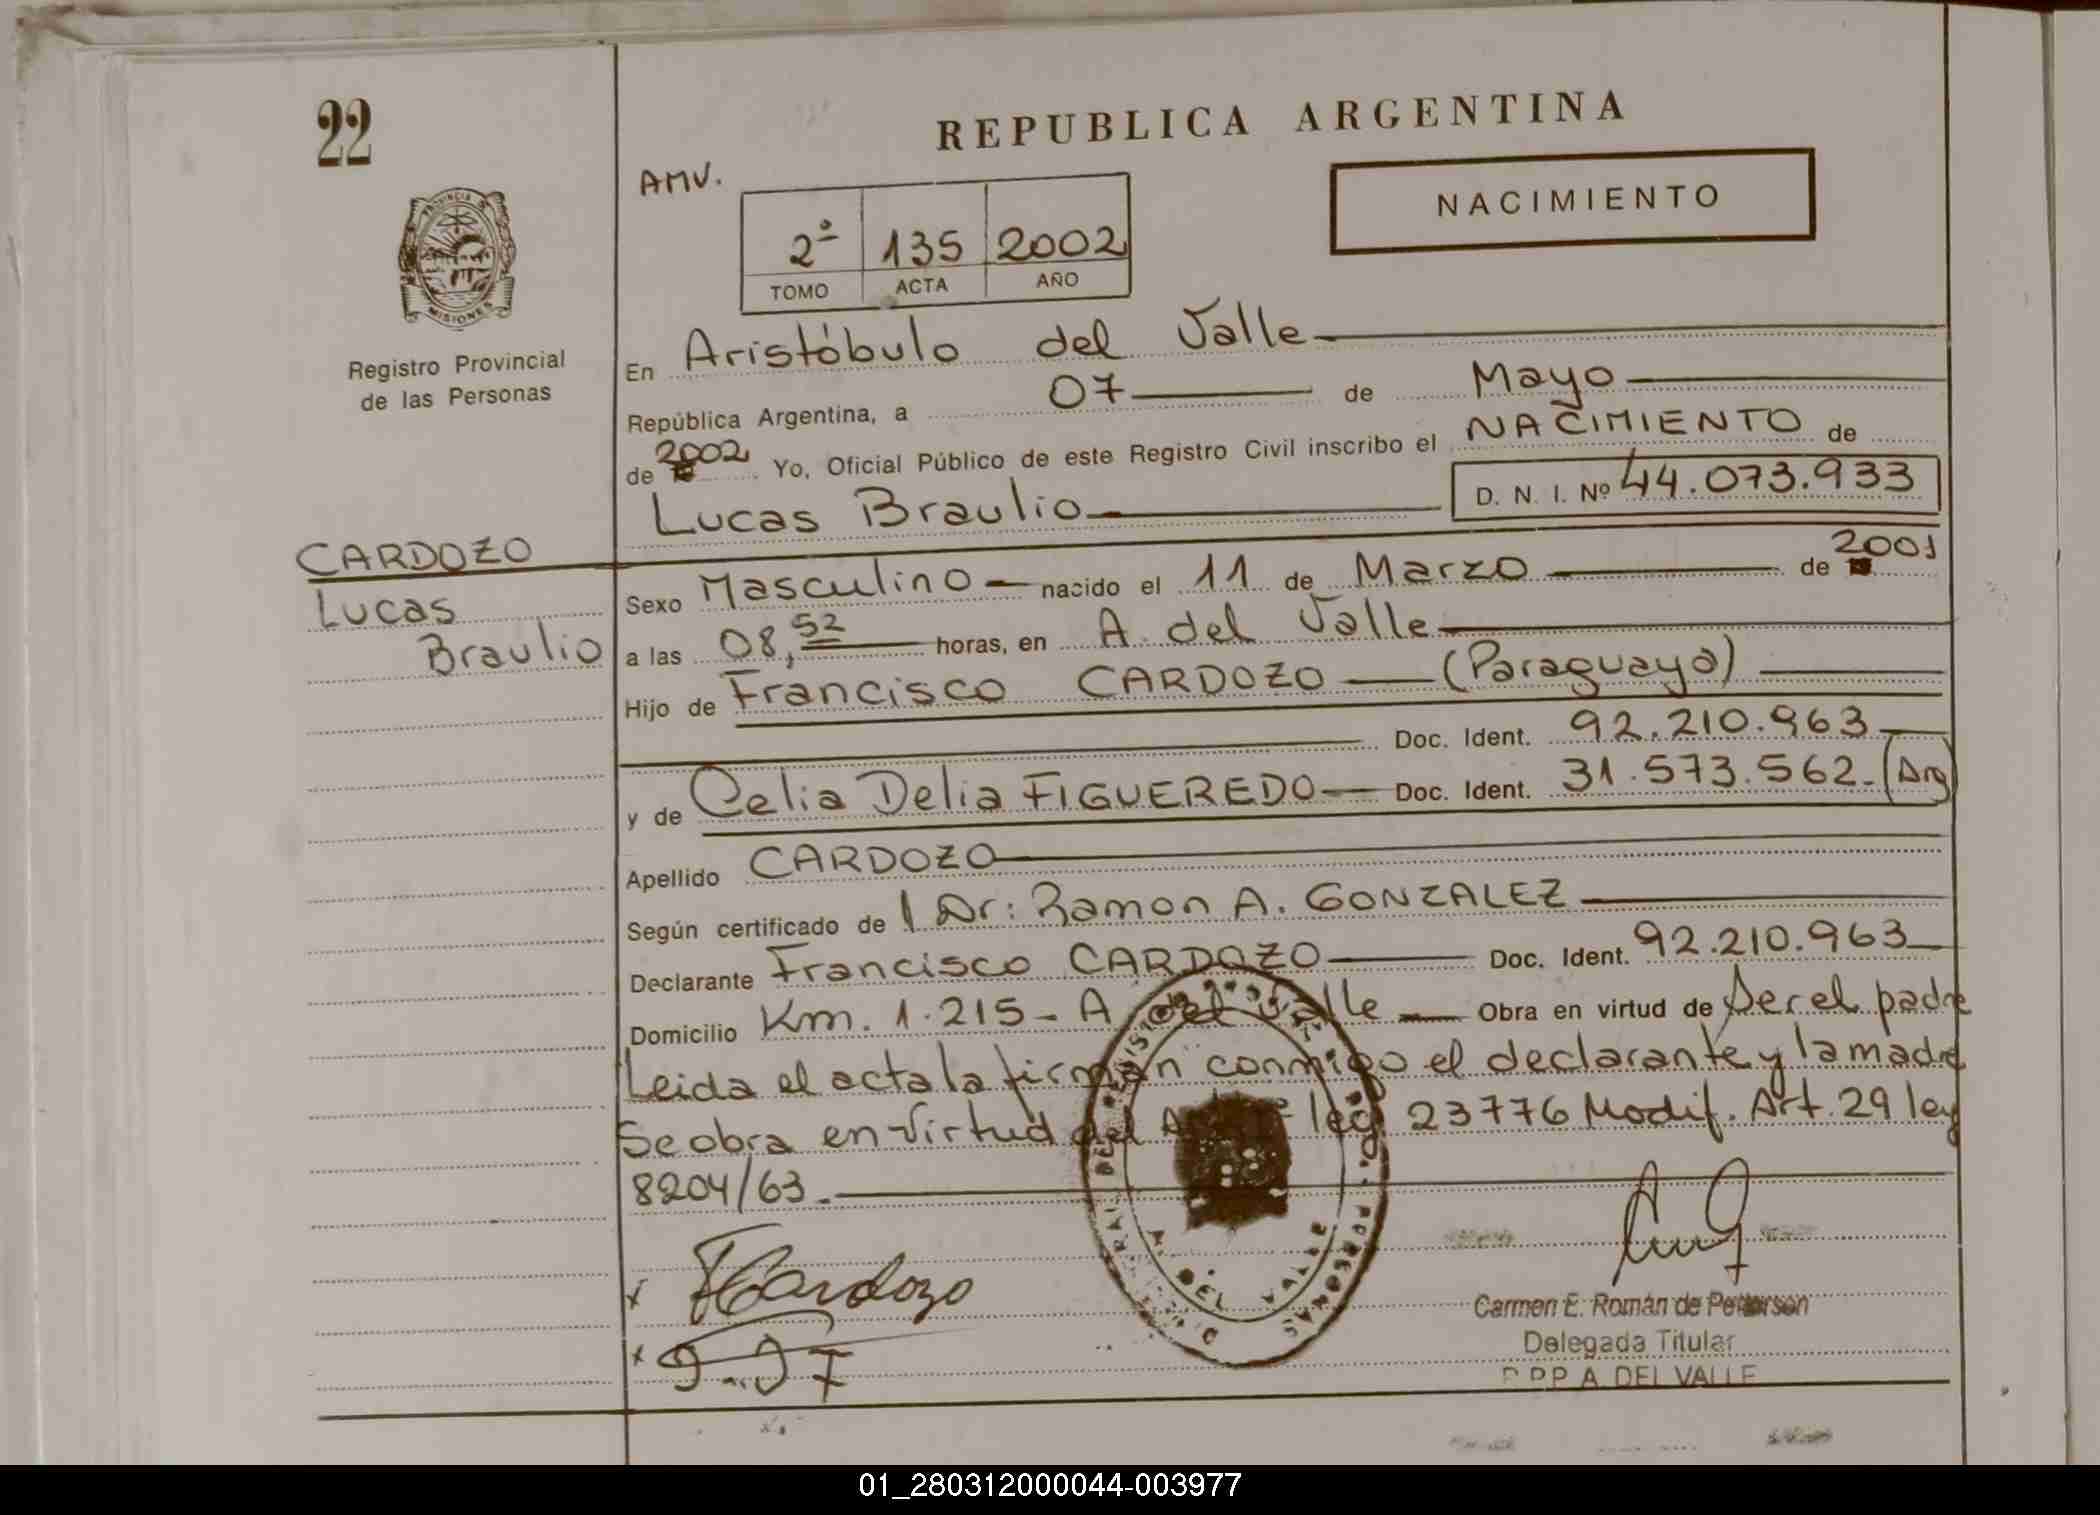 22
REPUBLICA ARGENTINA
AMV.
NACIMIENTO
2º 135 2002
TOMO ACTA AÑO
PROVINCIA DE
MISIONES
Registro Provincial
de las Personas
En Aristóbulo del Valle
República Argentina, a 07 de Mayo
de 2002 Yo, Oficial Público de este Registro Civil inscribo el NACIMIENTO de
Lucas Braulio D. N. I. Nº 44.073.933
CARDOZO
Lucas
Braulio
Sexo Masculino nacido el 11 de Marzo de 2001
a las 08,52 horas, en A. del Valle
Hijo de Francisco CARDOZO (Paraguayo)
Doc. Ident. 92.210.963
y de Celia Delia FIGUEREDO Doc. Ident. 31.573.562-(Arg)
Apellido CARDOZO
Según certificado de l Dr: Ramon A. GONZALEZ
Declarante Francisco CARDOZO Doc. Ident. 92.210.963
Domicilio Km. 1.215- A del Valle Obra en virtud de Ser el padre
Leida el acta la firman conmigo el declarante y la madre
Se obra en virtud del ley 23776 Modif. Art. 29 ley
8204/63.
A. DEL VALLE
x FCardozo
x
Carmen E. Román de Petterson
Delegada Titular
A. DEL VALLE
01_280312000044-003977